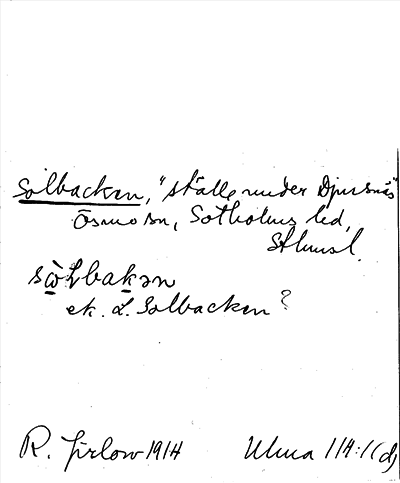 Solbacken, "ställe under Djursnäs"
Ösmo sn, Sotholms hd,
Sthmsl.
sὼLbakən
ek. L. Solbacken?
R. Jirlow 1914 Ulma 114:1(d)